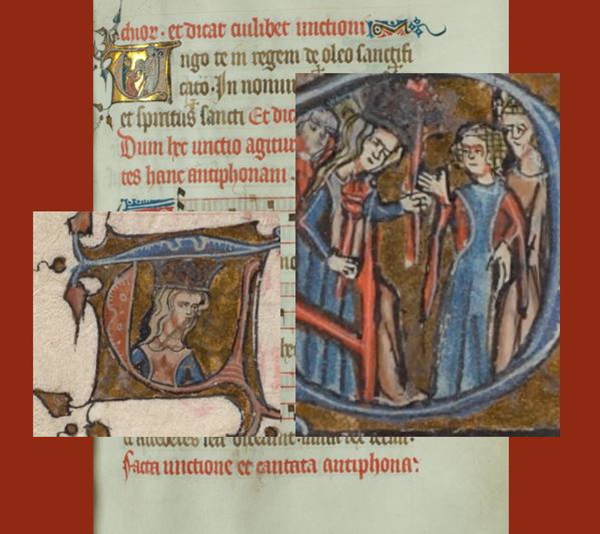 chior. et dicat cuilibet unctioni
Ungo te in regem de oleo sanctifi
cato. In nomi
et spiritus sancti Et dic
Dum hec unctio agitur
tes hanc antiphonam.
Facta unctione et cantata antiphona: